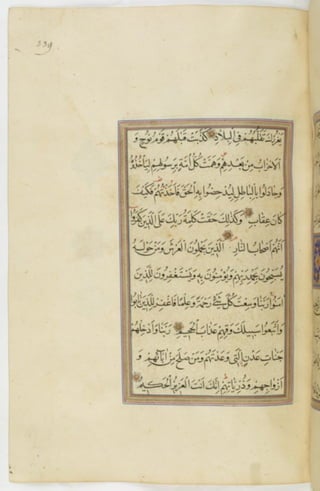 339
يغررك تقلبهم في البلاد كذبت قبلهم قوم نوح و
الاحزاب من بعدهم وهمت كل امة برسولهم ليأخذوه
وجادلوا بالباطل ليدحضوا به الحق فاخذتهم فكيف
كان عقاب وكذلك حقت كلمة ربك على الذين كفروا
انهم اصحاب النار الذين يحملون العرش ومن حوله
يسبحون بحمد ربهم ويؤمنون به ويستغفرون للذين
امنوا ربنا وسعت كل شيء رحمة وعلما فاغفر للذين تابوا
واتبعوا سبيلك وقهم عذاب الجحيم ربنا وادخلهم
جنات عدن التي وعدتهم ومن صلح من ابائهم و
ازواجهم وذرياتهم انك انت العزيز الحكيم